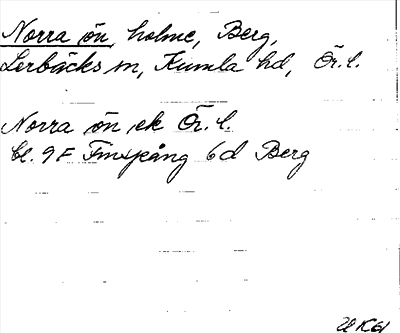 Norra ön, holme, Berg,
Lerbäcks sn, Kumla hd, Ör. l.
Norra ön ek Ör. l.
bl. 9 F Finspång 6d Berg